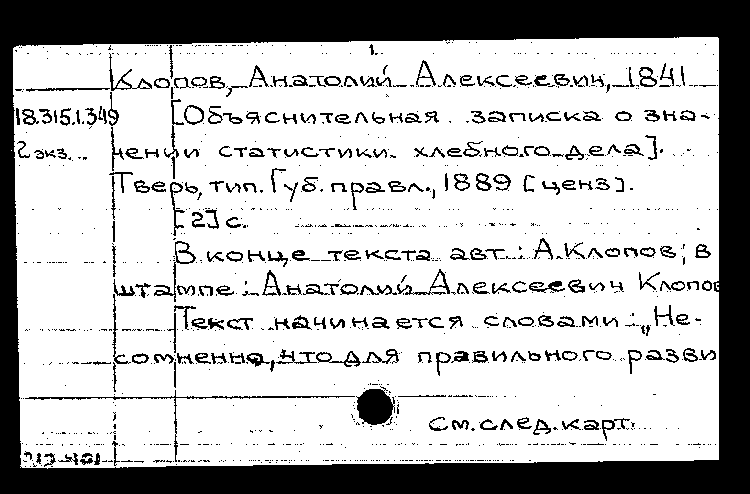 1.
Клопов, Анатолий Алексеевич, 1841
18.315.1.349 [Объяснительная записка о зна-
2 экз. чении статистики хлебного дела].
Тверь, тип. Губ. правл., 1889 [ценз].
[2] с.
В конце текста авт.: А. Клопов; в
штампе: Анатолий Алексеевич Клопов
Текст начинается словами: „Не-
сомненно, что для правильного разви
См. след. карт.